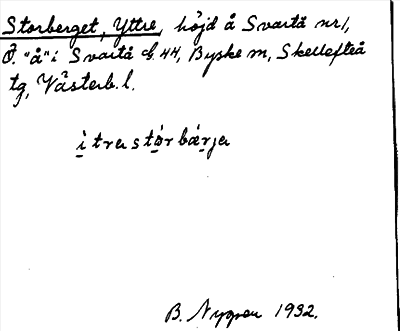 Storberget, Yttre, höjd å Svartå nr 1,
Ö. "å" i Svartå 44, Byske sn, Skellefteå
tg, Västerb. l.
ìtrerstòrbærjer
B. Nygren 1932.